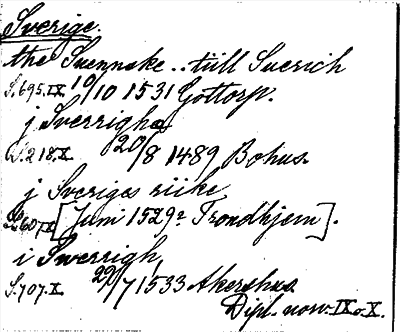 Sverige.
the Svennske .. tiill Suerich
S. 695. IX. 10/10 1531 Gottorp.
j Sverrigha
S. 218. X. 20/8 1489 Bohus.
j Sveriges riike
S. 607. IX [Juni 1529? Trondhjem].
i Swerrigh,
S. 707. X. 29/7 1533 Akershus.
Dipl. norv. IX o. X.